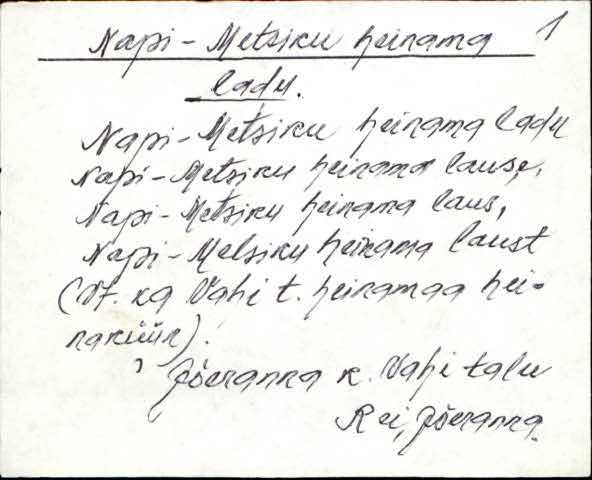 1
Napi-Metsiku heinama
ladu.
Napi-Metsiku heinama ladu
Napi-Metsiku heinama lause,
Napi-Metsiku heinama laus,
Napi-Metsiku heinama laust
(Vt. ka Vahi t. heinamaa hei-
naküün).
Jõeranna k. Vahi talu
Rei, Jõeranna.